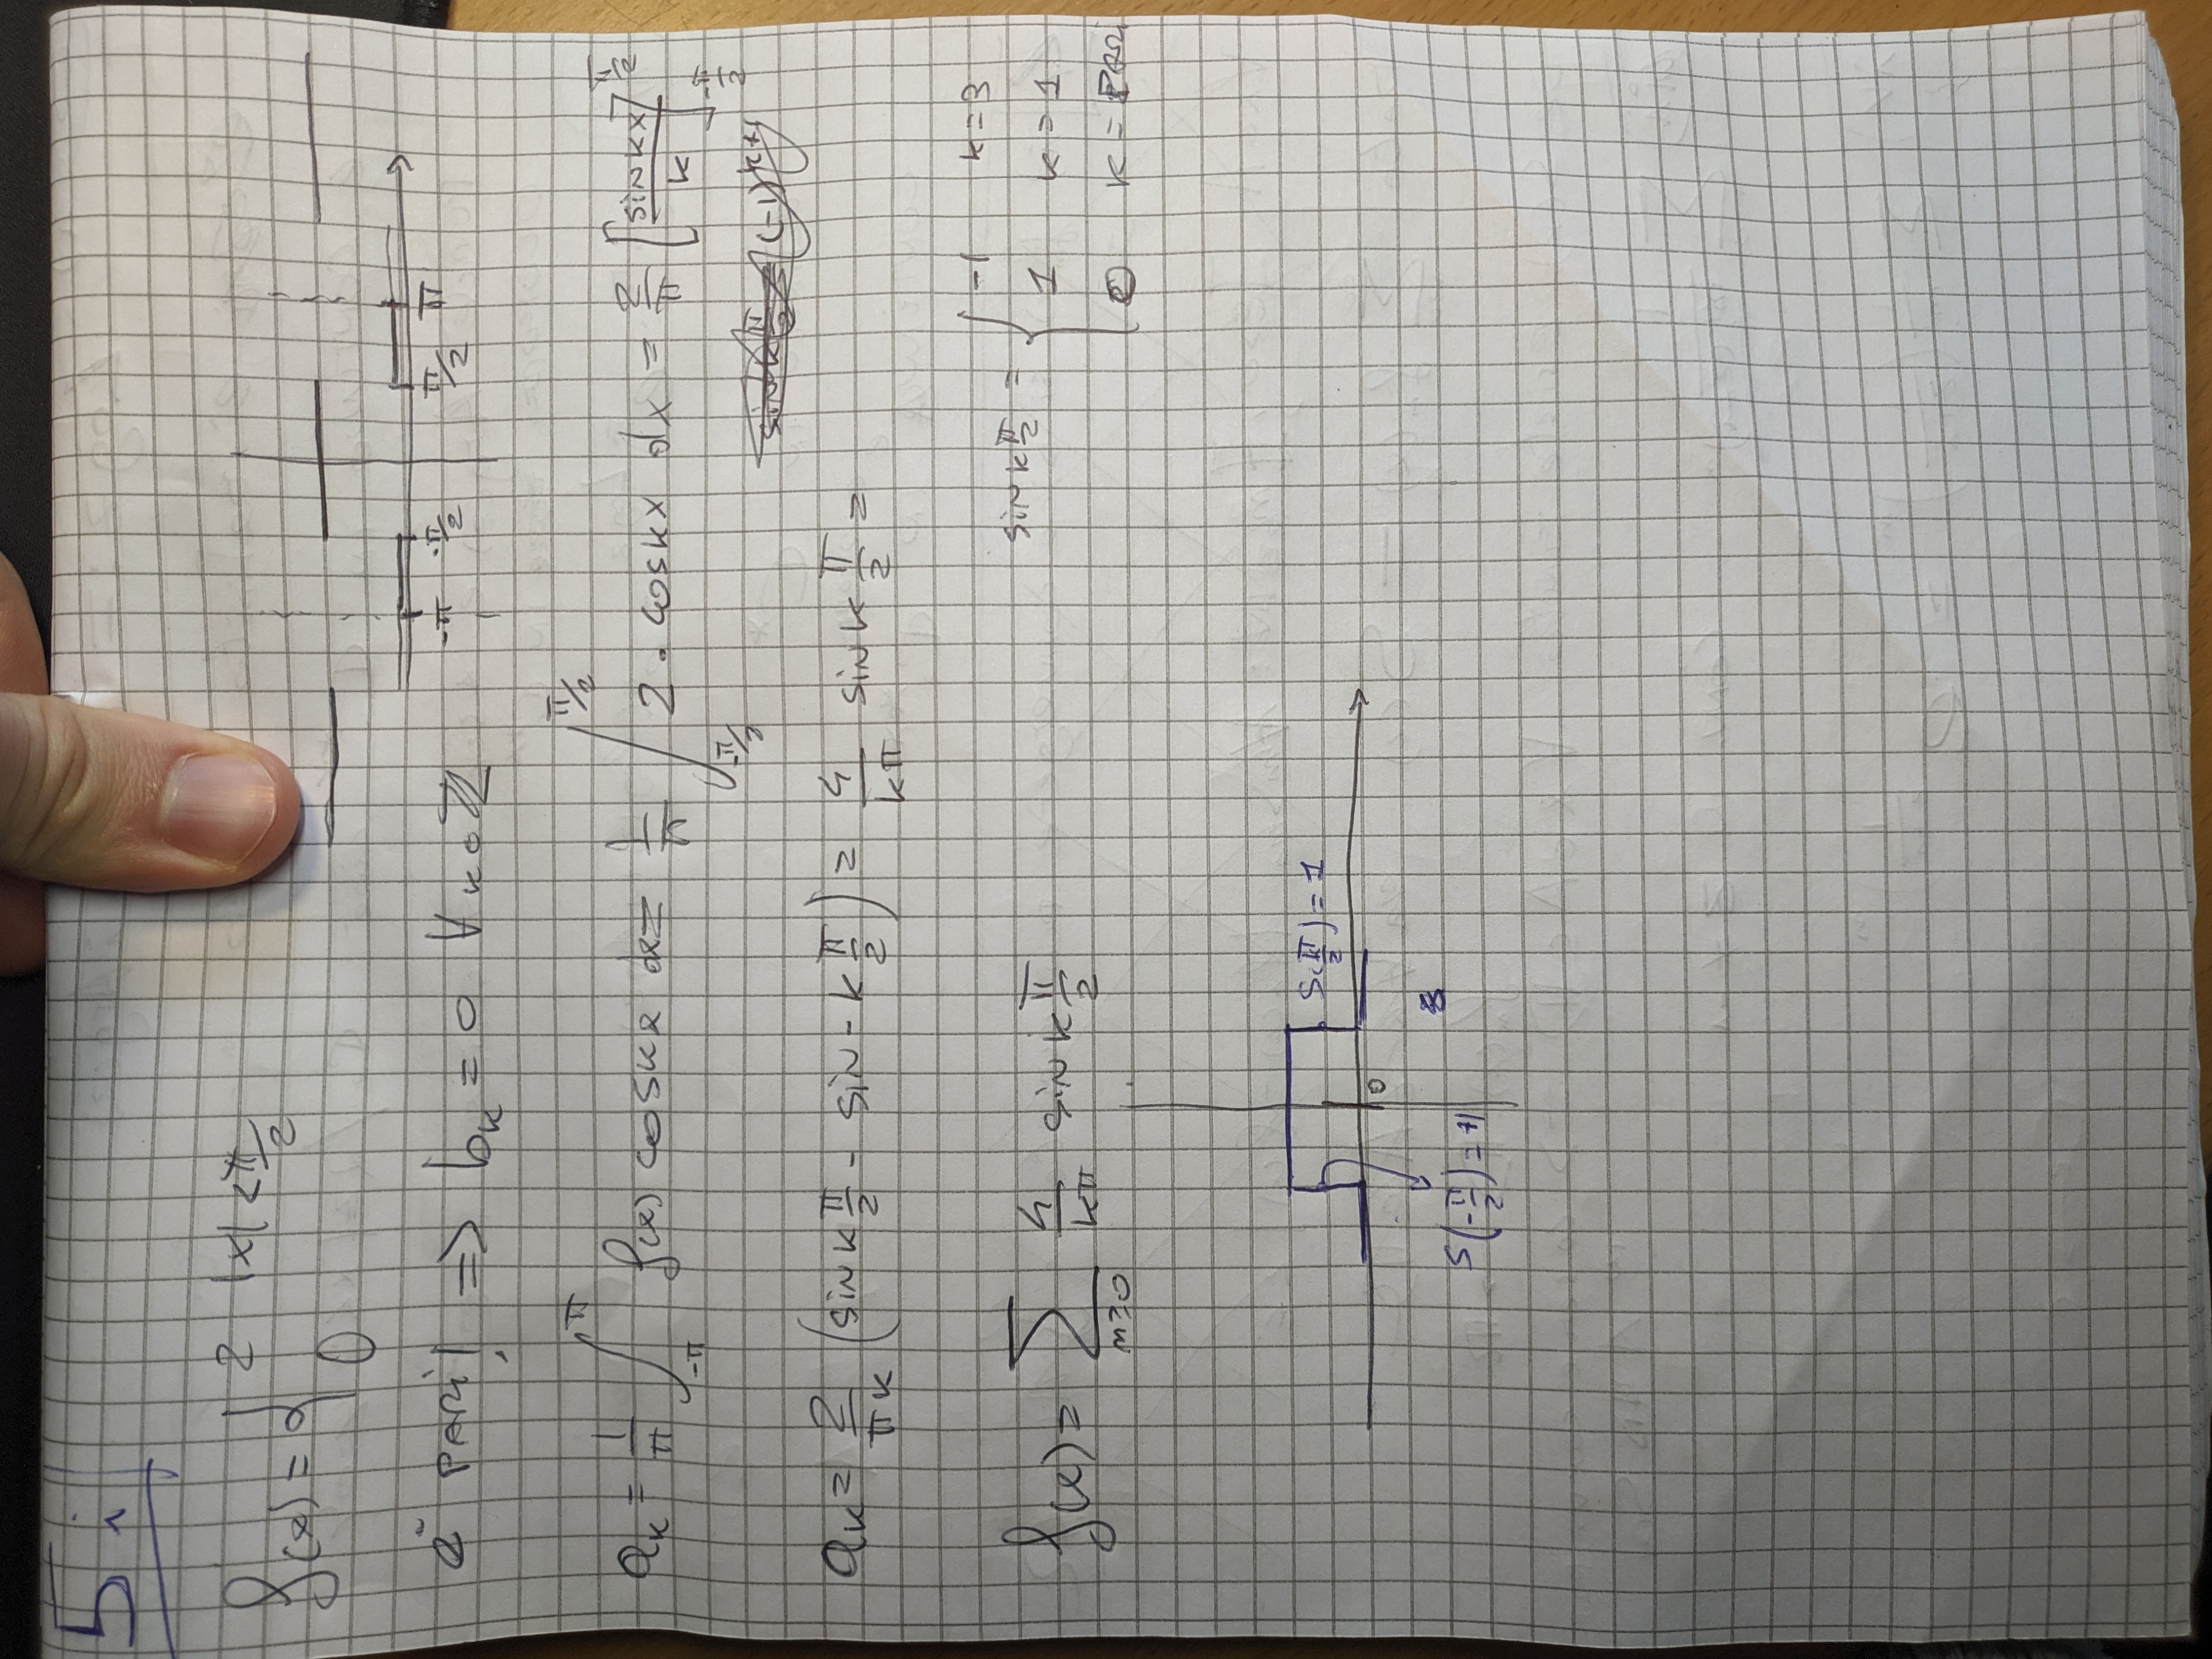 5 i
f(x) = { 2 |x| < π/2
0
-π -π/2 π/2 π
è PARI! => b_k = 0 ∀ k ∈ ℤ
a_k = 1/π ∫_{-π}^{π} f(x) cos kx dx = 1/π ∫_{-π/2}^{π/2} 2 · cos kx dx = 2/π [sin kx / k]_{-π/2}^{π/2}
a_k = 2/πk (sin k π/2 - sin - k π/2) = 4/kπ sin k π/2 =
sin k π/2 = { -1 k = 3
1 k = 1
0 k = PARI
f(x) = Σ_{n≥0} 4/kπ sin k π/2
S(π/2) = 1
0
S(-π/2) = +1